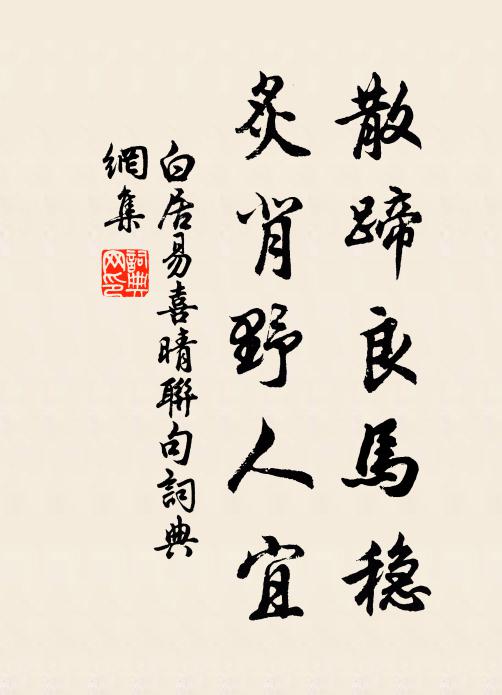 散蹄良馬稳
炙背野人宜
白居易喜晴聯句詞典
網集
詞典
网印